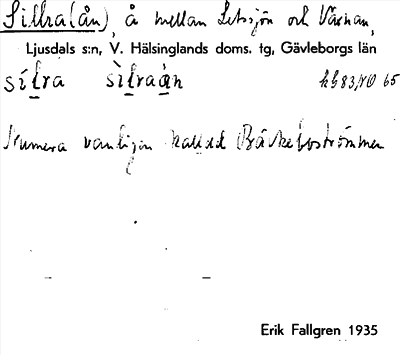 Sillra(ån), å mellan Letsjön och Växnan,
Ljusdals s:n, V. Hälsinglands doms. tg, Gävleborgs län
sílra sìlraàn hS 83, NO 65
Numera vanligen kallad Bäckeboströmmen
Erik Fallgren 1935